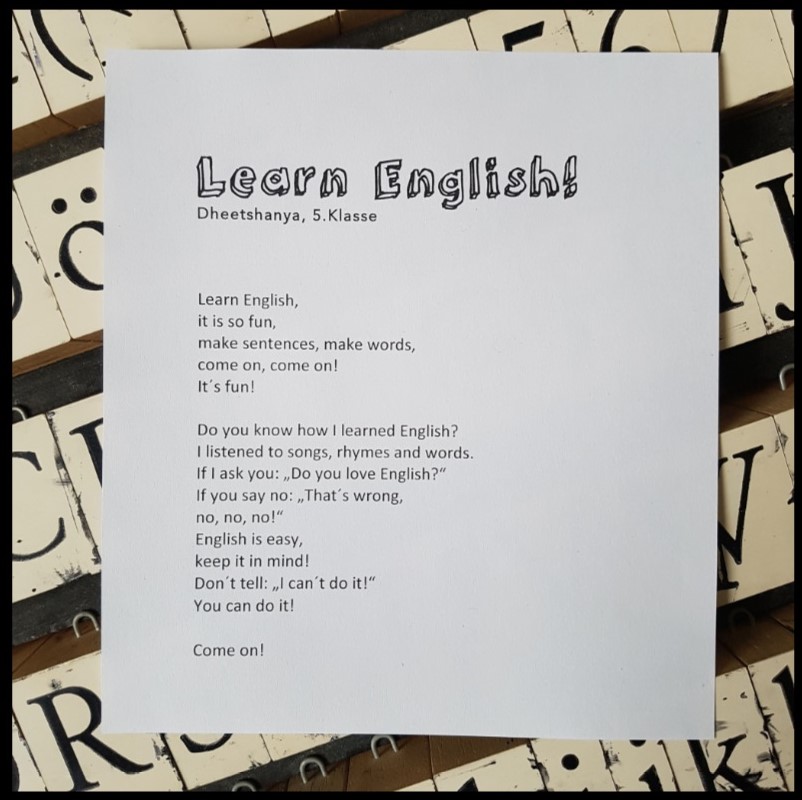 Learn English!
Dheetshanya, 5.Klasse
Learn English,
it is so fun,
make sentences, make words,
come on, come on!
It´s fun!
Do you know how I learned English?
I listened to songs, rhymes and words.
If I ask you: „Do you love English?“
If you say no: „That´s wrong,
no, no, no!“
English is easy,
keep it in mind!
Don´t tell: „I can´t do it!“
You can do it!
Come on!